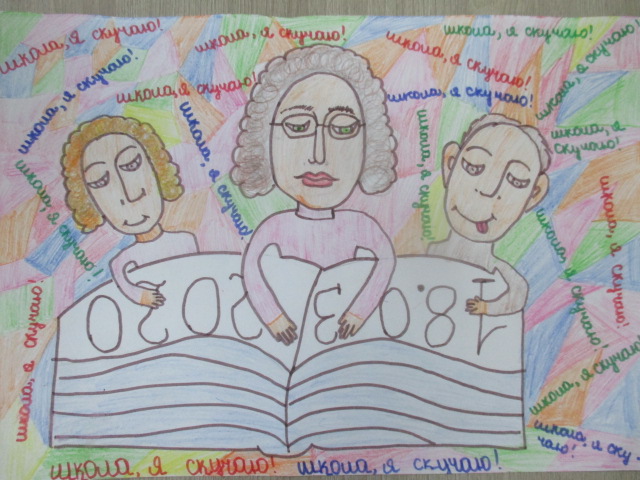 школа, я скучаю!
школа, я скучаю!
школа, я скучаю!
школа, я скучаю!
школа, я скучаю!
школа, я скучаю!
школа, я скучаю!
школа, я скучаю!
школа, я скучаю!
школа, я
скучаю!
школа, я скучаю!
школа, я скучаю!
школа, я скучаю!
школа, я скучаю!
18.03.2020
школа, я скучаю!
школа, я скучаю!
школа, я ску-
чаю!
школа, я скучаю!
школа, я скучаю!